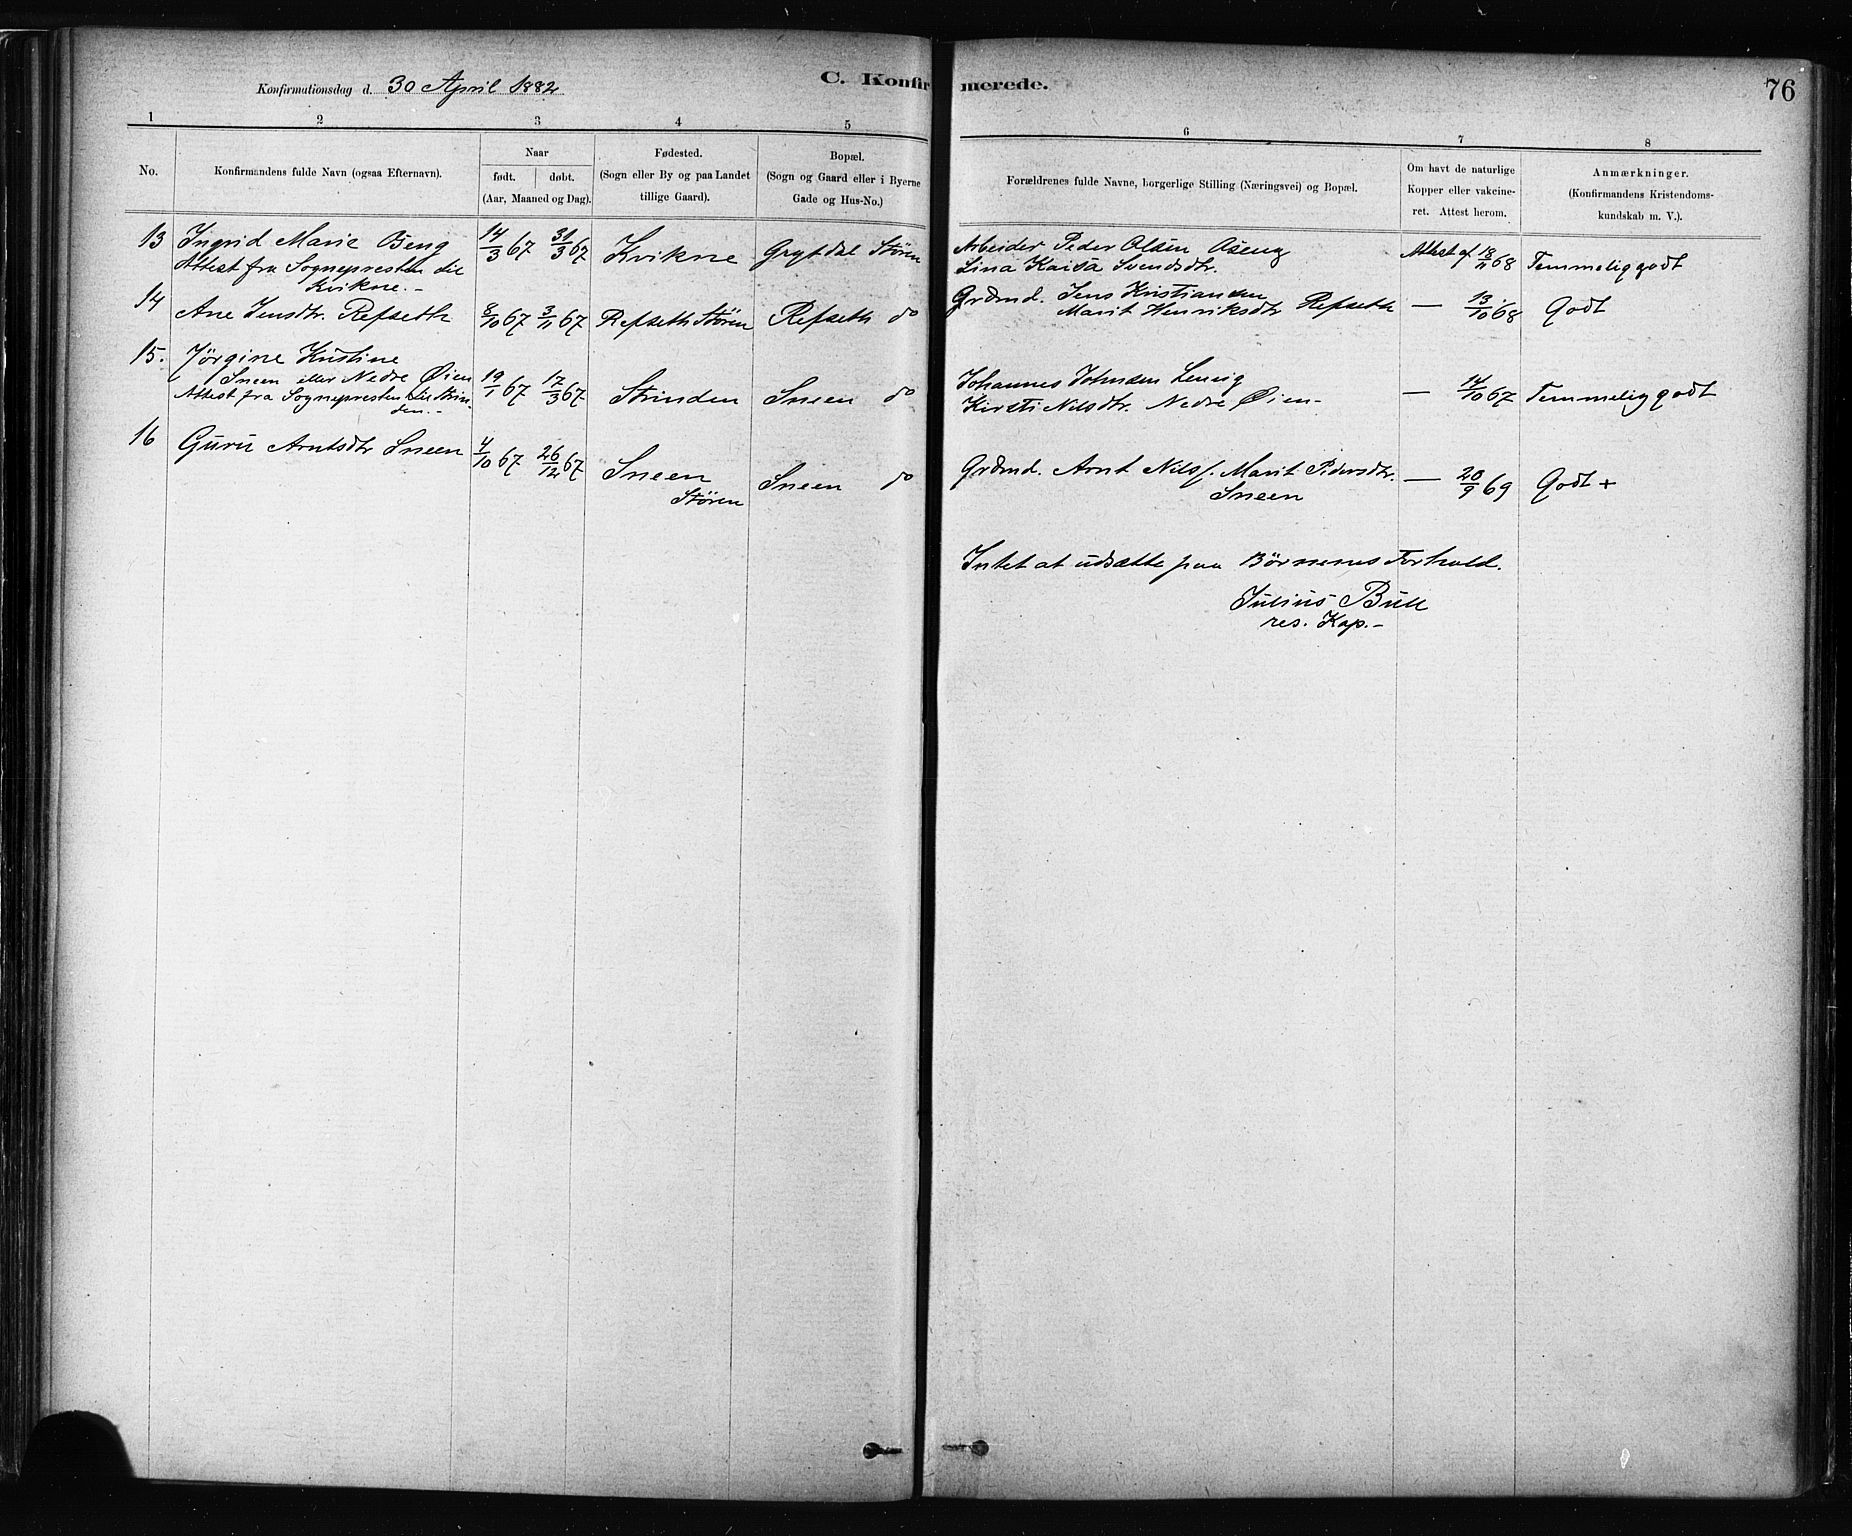 C. Konfirmerede.
76
Konfirmationsdag d. 30 April 1882
1 2 3 4 5 6 7 8
No.
Konfirmandens fulde Navn (ogsaa Efternavn).
Naar
født. døbt.
(Aar, Maaned og Dag).
Fødested.
(Sogn eller By og paa Landet
tillige Gaard).
Bopæl.
(Sogn og Gaard eller i Byerne
Gade og Hus-No.)
Forældrenes fulde Navne, borgerlige Stilling (Næringsvei) og Bopæl.
Om havt de naturlige
Kopper eller vakcine-
ret. Attest herom.
Anmærkninger.
(Konfirmandens Kristendoms-
kundskab m. V.).
13 Ingrid Marie Øseng 14/3 67 31/3 67 Kvikne Grytdal Stören Arbeider Peder Olsen Øseng Attest af 18/11 68 Temmelig godt
Attest fra Sognepresten til Lina Kaisa Svendsdtr.
Kvikne.-
14 Ane Jensdtr. Refseth 8/10 67 3/11 67 Refseth Stören Refseth do Grdmd. Jens Kristiansen — 13/10 68 Godt
Marit Henriksdtr Refseth
15. Jørgine Kristine
Sneen eller Nedre Øien 19/1 67 17/3 67 Strinden Sneen do Johannes Johnsen — 14/10 67 Temmelig godt
Attest fra Sognepresten til Strin- Kirsti Nilsdtr. Nedre Øien-
den.-
16 Guru Arntsdtr Sneen 4/10 67 26/12 67 Sneen Sneen do Grdmd. Arnt Nils f. Marit Pedersdtr. — 20/9 69 Godt +
Stören Sneen
Intet at udsætte paa Börnenes Forhold.
Julius Bull
res. Kap.-